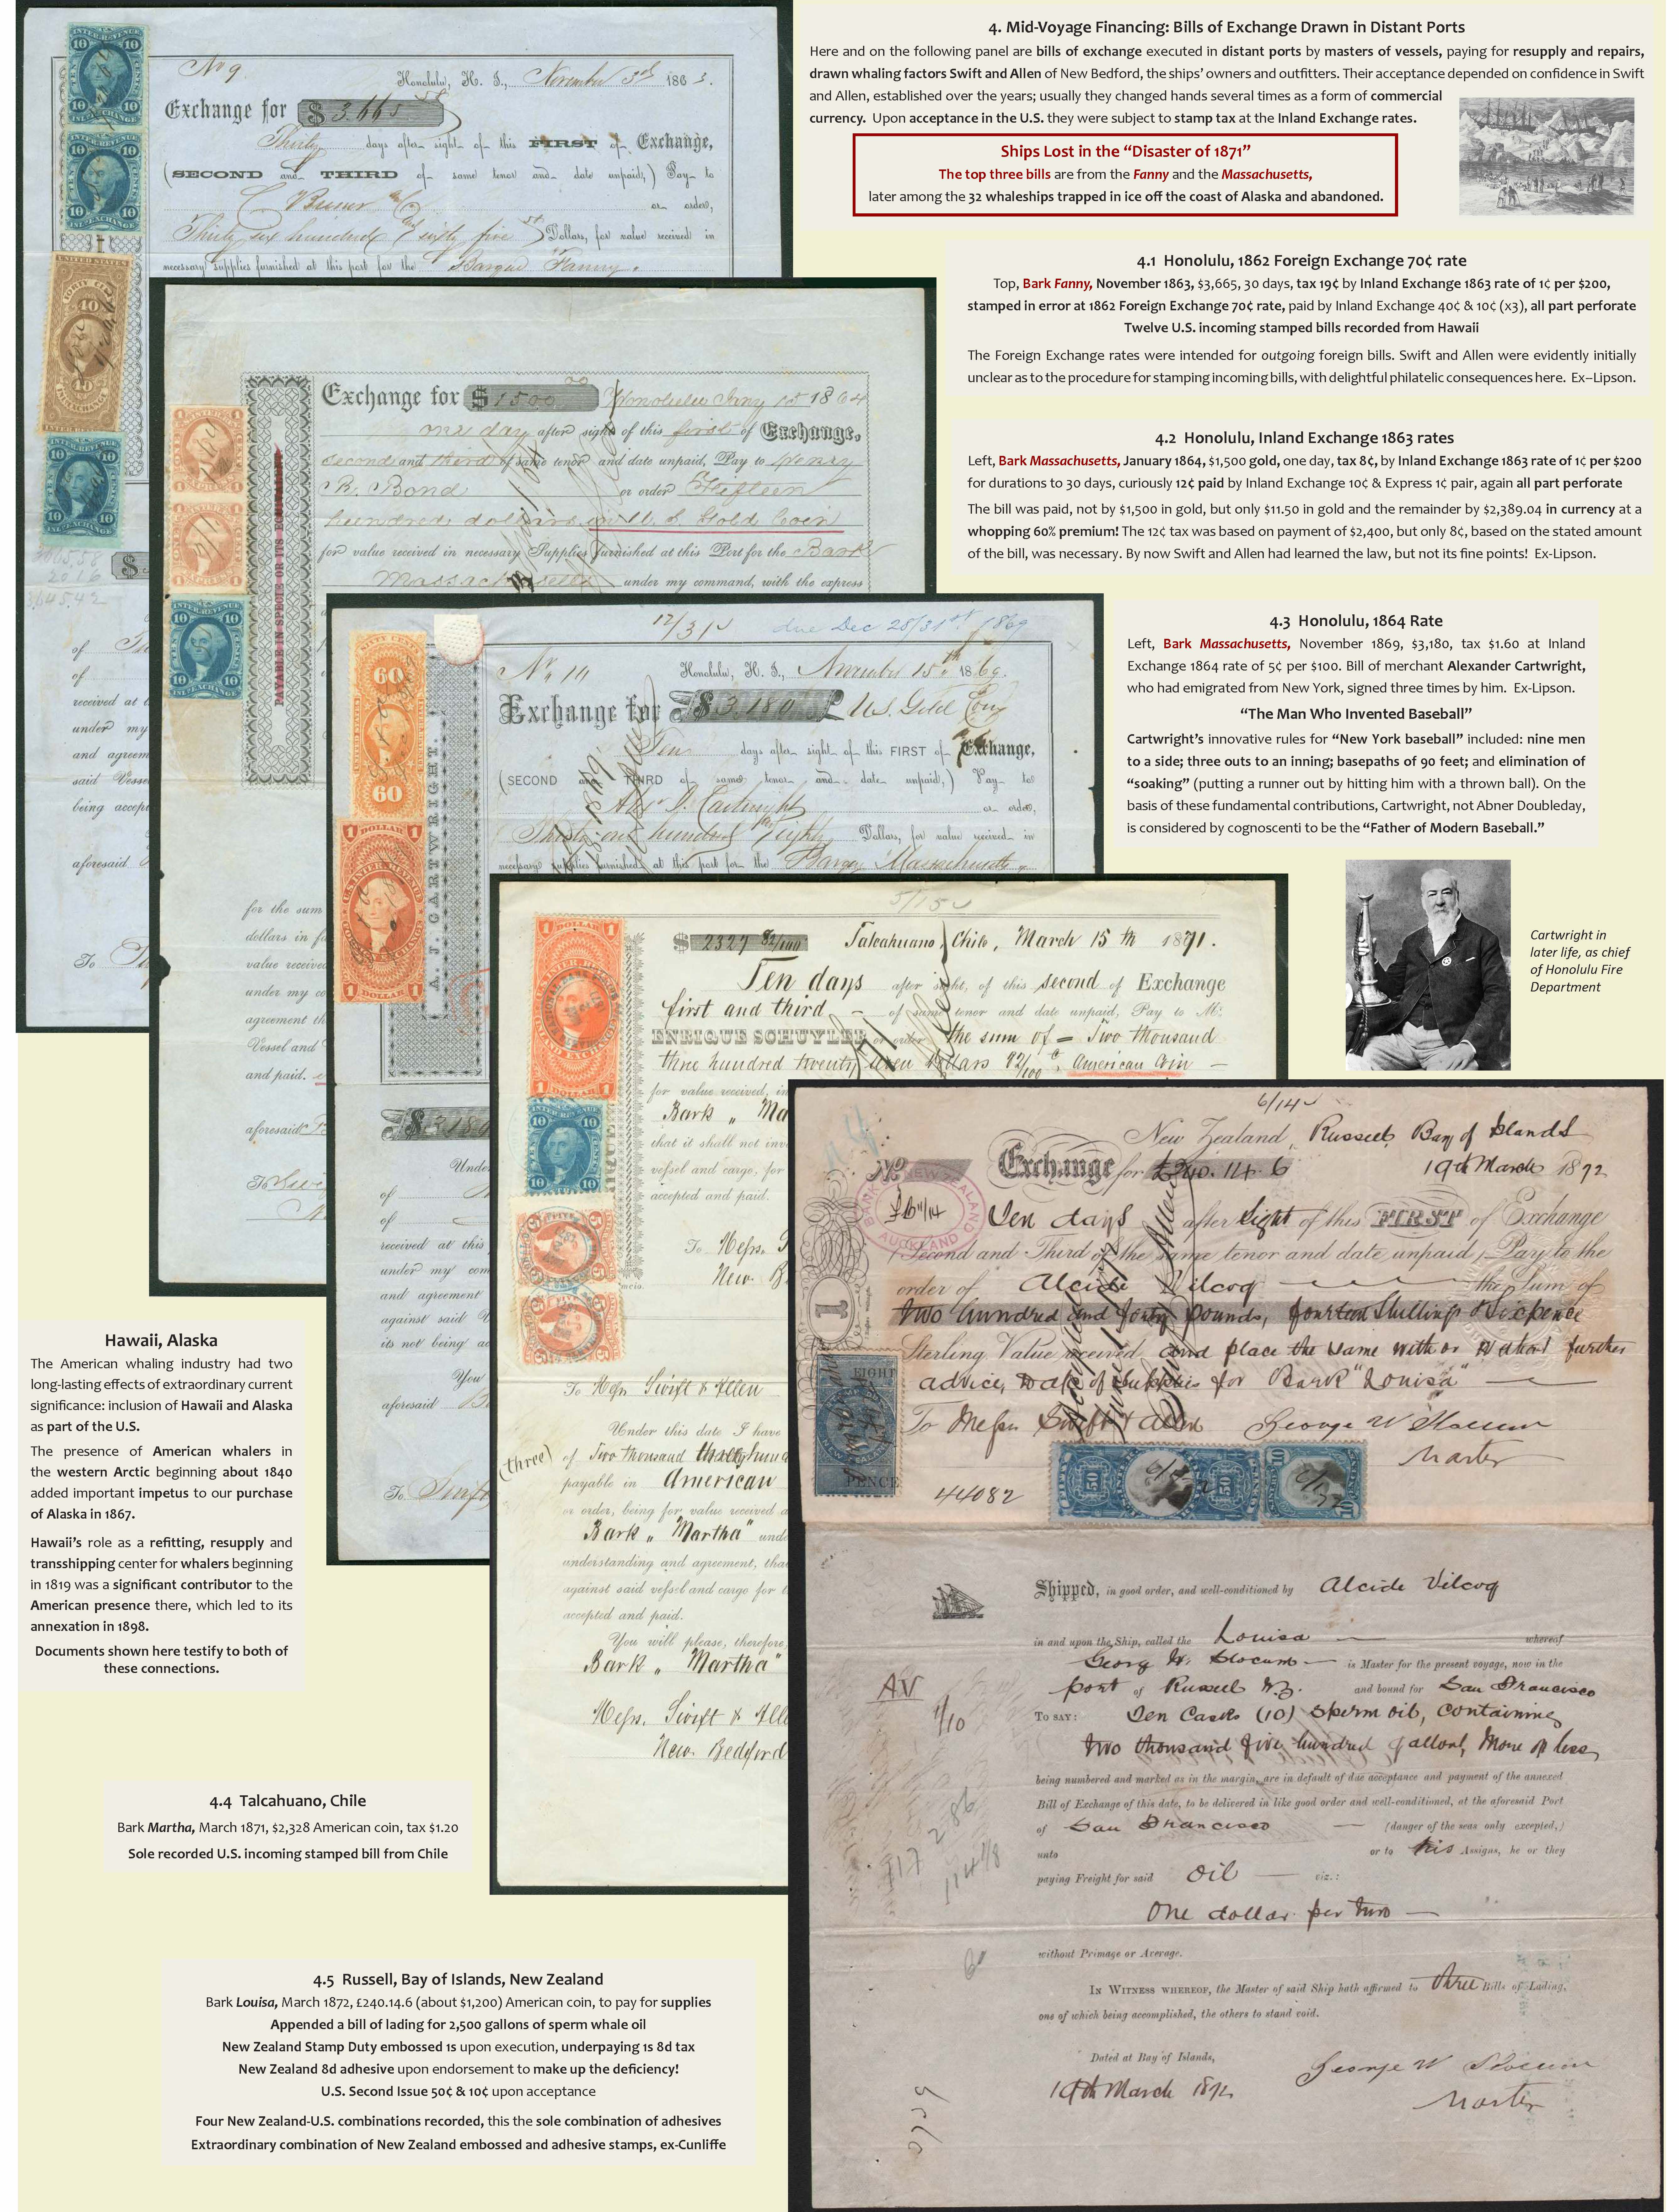 4. Mid-Voyage Financing: Bills of Exchange Drawn in Distant Ports
Here and on the following panel are bills of exchange executed in distant ports by masters of vessels, paying for resupply and repairs,
drawn whaling factors Swift and Allen of New Bedford, the ships' owners and outfitters. Their acceptance depended on confidence in Swift
and Allen, established over the years; usually they changed hands several times as a form of commercial
currency. Upon acceptance in the U.S. they were subject to stamp tax at the Inland Exchange rates.
Ships Lost in the “Disaster of 1871”
The top three bills are from the Fanny and the Massachusetts,
later among the 32 whaleships trapped in ice off the coast of Alaska and abandoned.
4.1 Honolulu, 1862 Foreign Exchange 70¢ rate
Top, Bark Fanny, November 1863, $3,665, 30 days, tax 19¢ by Inland Exchange 1863 rate of 1¢ per $200,
stamped in error at 1862 Foreign Exchange 70¢ rate, paid by Inland Exchange 40¢ & 10¢ (x3), all part perforate
Twelve U.S. incoming stamped bills recorded from Hawaii
The Foreign Exchange rates were intended for outgoing foreign bills. Swift and Allen were evidently initially
unclear as to the procedure for stamping incoming bills, with delightful philatelic consequences here. Ex–Lipson.
4.2 Honolulu, Inland Exchange 1863 rates
Left, Bark Massachusetts, January 1864, $1,500 gold, one day, tax 8¢, by Inland Exchange 1863 rate of 1¢ per $200
for durations to 30 days, curiously 12¢ paid by Inland Exchange 10¢ & Express 1¢ pair, again all part perforate
The bill was paid, not by $1,500 in gold, but only $11.50 in gold and the remainder by $2,389.04 in currency at a
whopping 60% premium! The 12¢ tax was based on payment of $2,400, but only 8¢, based on the stated amount
of the bill, was necessary. By now Swift and Allen had learned the law, but not its fine points! Ex-Lipson.
4.3 Honolulu, 1864 Rate
Left, Bark Massachusetts, November 1869, $3,180, tax $1.60 at Inland
Exchange 1864 rate of 5¢ per $100. Bill of merchant Alexander Cartwright,
who had emigrated from New York, signed three times by him. Ex-Lipson.
“The Man Who Invented Baseball”
Cartwright's innovative rules for “New York baseball” included: nine men
to a side; three outs to an inning; basepaths of 90 feet; and elimination of
“soaking” (putting a runner out by hitting him with a thrown ball). On the
basis of these fundamental contributions, Cartwright, not Abner Doubleday,
is considered by cognoscenti to be the “Father of Modern Baseball.”
Cartwright in
later life, as chief
of Honolulu Fire
Department
Hawaii, Alaska
The American whaling industry had two
long-lasting effects of extraordinary current
significance: inclusion of Hawaii and Alaska
as part of the U.S.
The presence of American whalers in
the western Arctic beginning about 1840
added important impetus to our purchase
of Alaska in 1867.
Hawaii's role as a refitting, resupply and
transshipping center for whalers beginning
in 1819 was a significant contributor to the
American presence there, which led to its
annexation in 1898.
Documents shown here testify to both of
these connections.
4.4 Talcahuano, Chile
Bark Martha, March 1871, $2,328 American coin, tax $1.20
Sole recorded U.S. incoming stamped bill from Chile
4.5 Russell, Bay of Islands, New Zealand
Bark Louisa, March 1872, £240.14.6 (about $1,200) American coin, to pay for supplies
Appended a bill of lading for 2,500 gallons of sperm whale oil
New Zealand Stamp Duty embossed 1s upon execution, underpaying 1s 8d tax
New Zealand 8d adhesive upon endorsement to make up the deficiency!
U.S. Second Issue 50¢ & 10¢ upon acceptance
Four New Zealand-U.S. combinations recorded, this the sole combination of adhesives
Extraordinary combination of New Zealand embossed and adhesive stamps, ex-Cunliffe
No 9
Honolulu, H. I., November 3rd 1863.
Exchange for $ 3.665
Thirty days after sight of this FIRST of Exchange,
(SECOND and THIRD of same tenor and date unpaid,) Pay to
or order,
Thirty six hundred & sixty five Dollars, for value received in
necessary supplies furnished at this port for the Barque Fanny.
Exchange for $ 1500 Honolulu Jany 15 1864
one day after sight of this first of Exchange,
second and third of same tenor and date unpaid, Pay to Henry
R. Bond or order Fifteen
hundred dollars in U.S. Gold Coin
for value received in necessary Supplies furnished at this Port for the Bark
Massachusetts under my command, with the express
PAYABLE IN SPECIE OR ITS
12/31 due Dec 28/31st 1869
Honolulu, H. I., November 15th 1869.
Exchange for $ 3.180 U.S. Gold Coin
Ten days after sight of this FIRST of Exchange,
(SECOND and THIRD of same tenor and date unpaid,) Pay to
Alex J. Cartwright or order,
Thirty one hundred & eighty Dollars, for value received in
necessary supplies furnished at this port for the Barque Massachusetts
A. J. CARTWRIGHT.
$ 2327 82/100 Talcahuano, Chile, March 15th 1871.
Ten days after sight, of this second of Exchange
first and third of same tenor and date unpaid, Pay to Mr.
ENRIQUE SCHUYLER or order the sum of = Two thousand
three hundred twenty seven Dollars 82/100 American Coin
for value received, in
Bark „ Ma
that it shall not inv
vessel and cargo, for
accepted and paid.
To Messrs. Swift & Allen
Under this date I have
(three) of Two thousand three hund
payable in American
or order, being for value received
Bark „ Martha" unde
understanding and agreement, tha
against said vessel and cargo for
accepted and paid.
You will please, therefore,
Bark „ Martha"
Messrs. Swift & Alle
New Bedford
6/14
New Zealand, Russell, Bay of Islands
No Exchange for £240.14.6 19th March 1872
BANK OF NEW ZEALAND AUCKLAND
Ten days after Sight of this FIRST of Exchange
(Second and Third of the same tenor and date unpaid) Pay to the
order of Alcide Vilcoq the Sum of
two hundred and forty pounds, fourteen Shillings & Sixpence
Sterling Value received and place the same with or without further
advice, to a/c of Supplies for Bark "Louisa"
To Messrs Swift & Allen George W Slocum
Master
44082
Shipped, in good order, and well-conditioned by Alcide Vilcoq
in and upon the Ship, called the Louisa whereof
George W. Slocum is Master for the present voyage, now in the
port of Russell N.Z. and bound for San Francisco
TO SAY: Ten Casks (10) Sperm oil, containing
two thousand five hundred gallons, more or less,
being numbered and marked as in the margin, are in default of due acceptance and payment of the annexed
Bill of Exchange of this date, to be delivered in like good order and well-conditioned, at the aforesaid Port
of San Francisco (danger of the seas only excepted,)
unto or to his Assigns, he or they
paying Freight for said oil viz.:
One dollar per tun
without Primage or Average.
IN WITNESS WHEREOF, the Master of said Ship hath affirmed to three Bills of Lading,
one of which being accomplished, the others to stand void.
Dated at Bay of Islands,
19th March 1872
George W Slocum
Master
AV
1/10